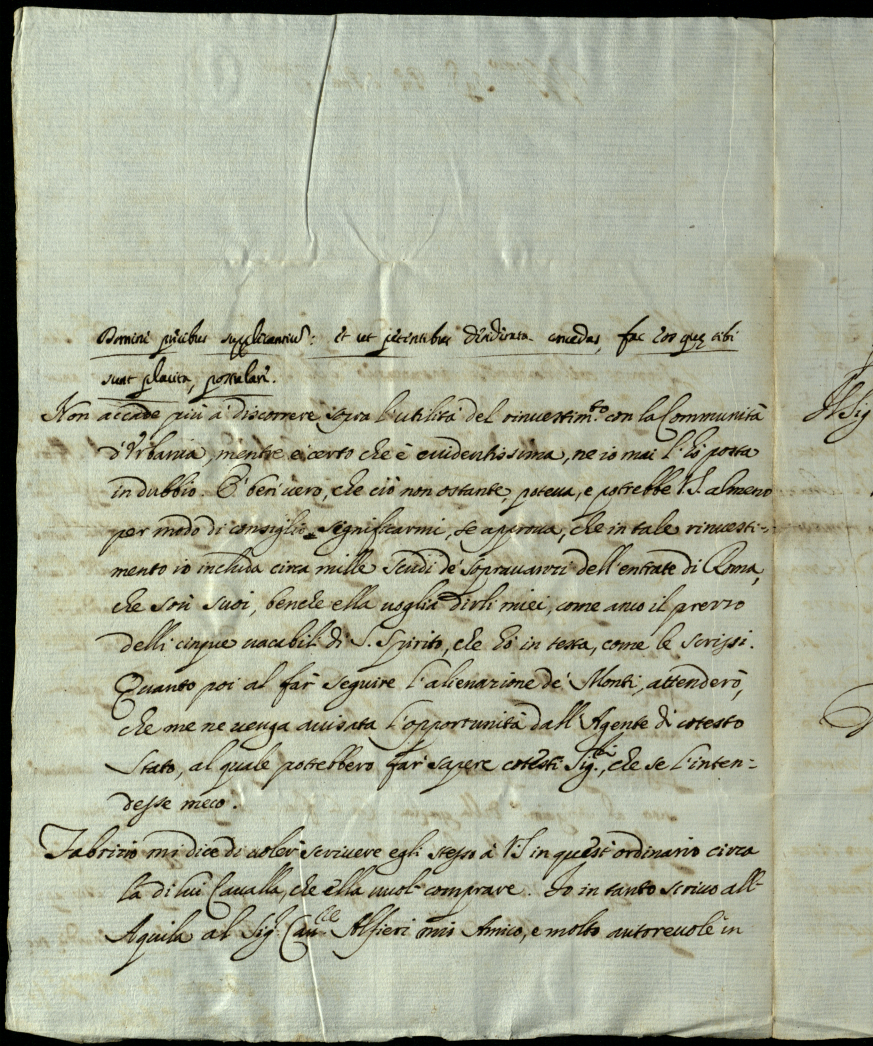 Domini precibus supplicantium: et ut petentibus desiderata concedas, fac eos quę tibi
sunt placita, postulare.
Non accade più à discorrere sopra l'utilità del rinuestim.to con la Communità
d'Vrbania, mentre è certo che è euidentissima, ne io mai l'hò posta
in dubbio. È ben uero, che ciò non ostante poteua, e potrebbe V.S. almeno
per modo di consiglio significarmi, se approua, che in tale rinuesti-
mento io includa circa mille scudi de' sopravanzi dell'entrate di Roma,
che son suoi, benche ella uoglia dirli miei, come anco il prezzo
delli cinque uacabili di S. Spirito, che hò in testa, come le scrissi.
Quanto poi al far seguire l'alienazione de' Monti, attenderò,
che me ne uenga auisata l'opportunità dall'Agente di cotesto
Stato, al quale potrebbero far sapere cotesti Sig.ri, che se l'inten=
desse meco.
Fabrizio mi dice di uoler scriuere egli stesso à V.S. in quest'ordinario circa
la di lui Caualla, che ella uuol comprare. Io in tanto scriuo all'
Aquila al Sig. Cau.re Alfieri mio Amico, e molto autoreuole in
Il Sig